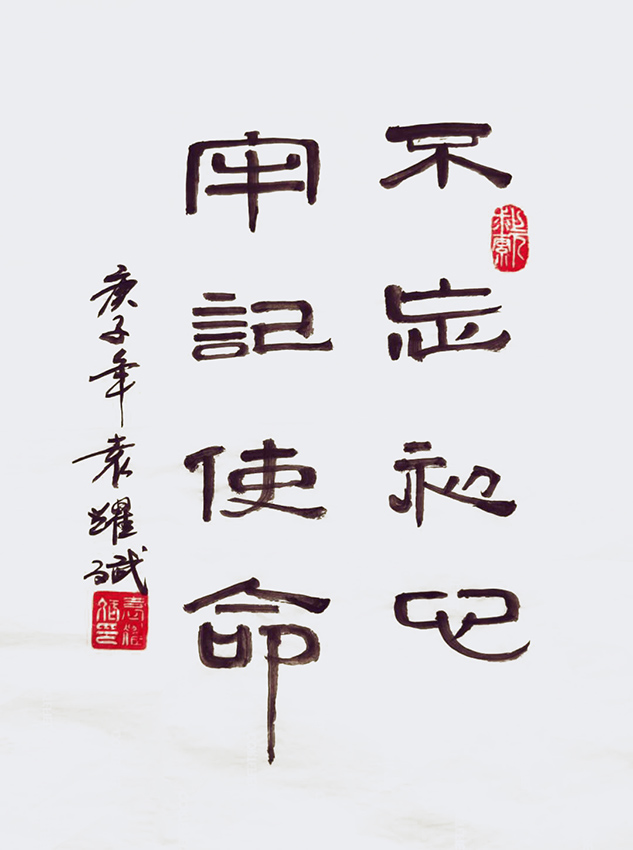 不忘初心
牢記使命
庚子年袁耀斌